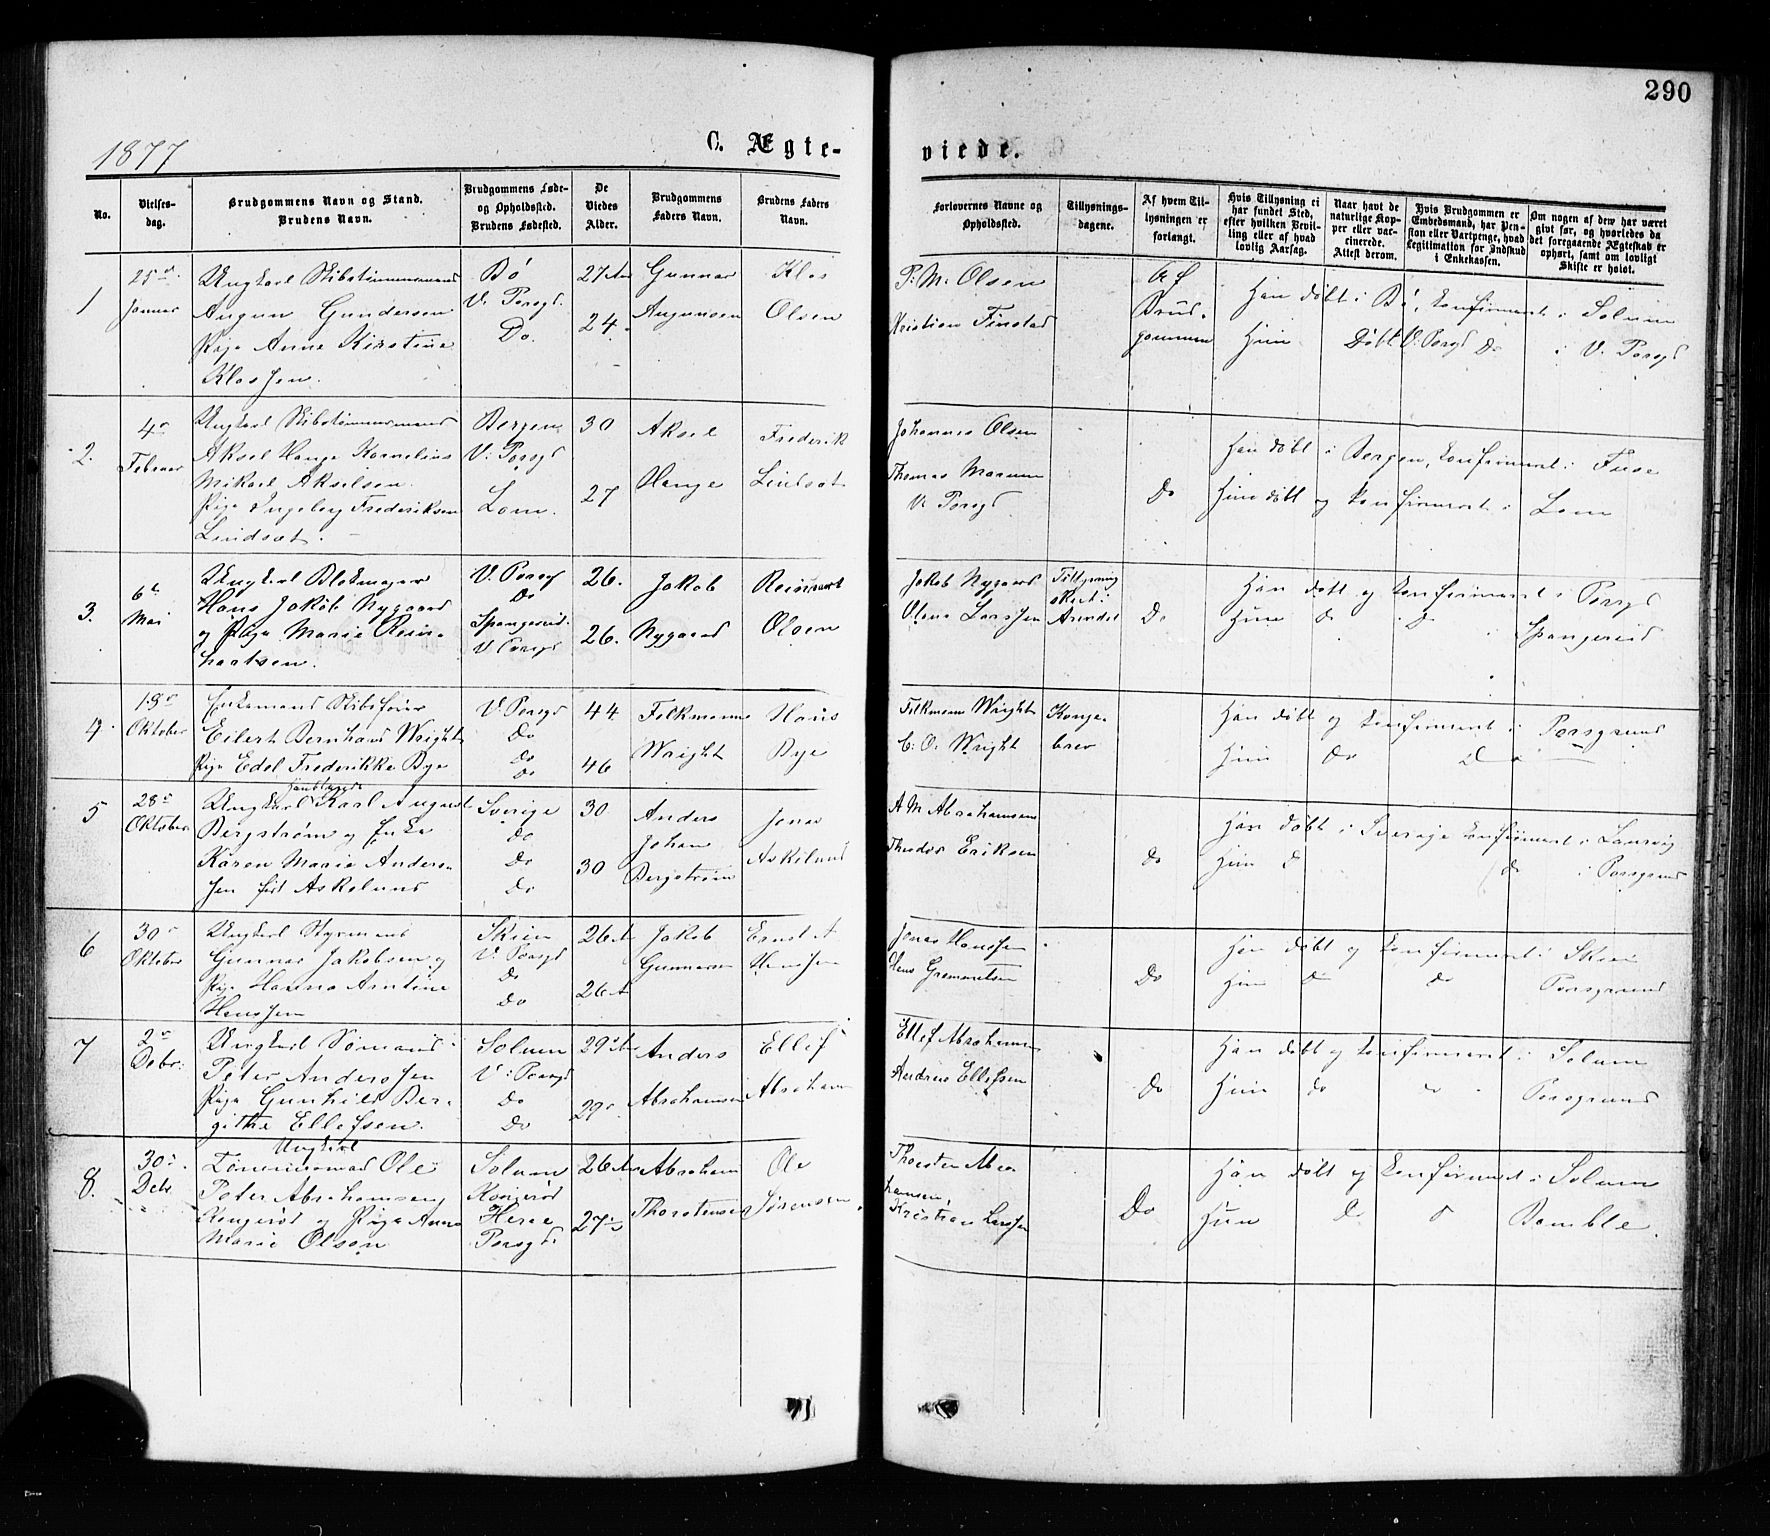 290
1877
C. Ægte-
viede.
No.
Vielses-
dag.
Brudgommens Navn og Stand.
Brudens Navn.
Brudgommens Føde-
og Opholdssted.
Brudens Fødested.
De
Viedes
Alder.
Brudgommens
Faders Navn.
Brudens Faders
Navn.
Forlovernes Navne og
Opholdssted.
Tillysnings-
dagene.
Af hvem Til-
lysningen er
forlangt.
Hvis Tillysning ei
har fundet Sted,
efter hvilken Bevil-
ling eller af hvad
lovlig Aarsag.
Naar havt de
naturlige Kop-
per eller vac-
cinerede.
Attest derom.
Hvis Brudgommen er
Embedsmand, har Pen-
sion eller Vartpenge, hvad
Legitimation for Indskud
i Enkekassen.
Om nogen af dem har været
givt før, og hvorledes da
det foregaaende Ægteskab er
ophørt, samt om lovligt
Skifte er holdt.
1
25de
Januar
Ungkarl Skibstimmermand
Augun Gundersen
Pige Anne Kirstine
Klassen.
Bö
V. Porsgd.
Do.
27
24
Gunnar
Augunsen
Klas
Olsen
P. M. Olsen
Kristian Finstad
Af
Brud-
gommen
Han döbt i Bö, konfirmeret i Solum
Hun Döbt V. Porsgd Do i V. Porsgd
2.
4de
Februar
Ungkarl Skibstimmermand
Aksel Hange Kornelius
Mikael Akselsen.
Pige Ingeborg Frederiksen
Lindsæt.
Bergen
V. Porsgd
Lom.
30
27
Aksel
Hange
Frederik
Lindsæt
Johannes Olsen
Thomas
V. Porsgd
Do
Han döbt i Bergen, konfirmeret i Fuse
Hun döbt og konfirmeret i Lom
3.
6te
Mai
Ungkarl Blokmager
Hans Jakob Nygaard
og Pige Marie Rein-
hartsen.
V. Porsgd
Do
Spangereid
V. Porsgd
26.
26.
Jakob
Nygaard
Reinhart
Olsen
Jakob Nygaard
Olaus Larssen
Tillysning
skeet i
Arendal
Do
Han döbt og konfirmeret i Porsgd
Hun Do Do Spangereid
4.
19de
Oktober
Enkemand Skibsfører
Eilert Bernhard Wright
Pige Edel Frederikke Bye
V. Porsgd
Do
Do
Do
44
46
Felkmann
Wright
Hans
Bye
Felkmann Wright
C. O. Wright
Konge-
brev
Han döbt og konfirmeret i Porsgrund
Hun Do Do
5
28de
Oktober
Ungkarl Karl August
Bergström og Enke
Karen Marie Anders-
sen föd Askelund
Sverige
Do
Do
Do
30
30
Anders
Johan
Bergström
Jonas
Askelund
A M Abrahamsen
Theodor Eriksen
Do
Han döbt i Sverige konfirmeret i Laurvig
Hun do do i Porsgrund
6
30de
Oktober
Ungkarl Styrmand
Gunnar Jakobsen og
Pige Hanna Arntine
Hanssen
Skien
V. Porsgd
Do
Do
26
26
Jakob
Gunnarsen
Ernst A
Hanssen
Jonas Hanssen
Do
Han döbt og konfirmeret i Skien
Hun do do Porsgrund
7
2de
Debr.
Ungkarl Sømand
Peter Anderssen
Pige Gunhild Ber-
githe Ellefsen.
Solum
V. Porsgd
Do
Do
29
29
Anders
Abrahamsen
Ellef
Abraham
Ellef Abrahamsen
Andreas Ellefsen
Do
Han döbt og konfirmeret i Solum
Hun do Porsgrund
8.
30de
Debr
Ungkarl
Tømmermand Ole
Peter Abrahamsen
Kongerød og Pige Anne
Marie Olsen
Solum
Kongerød
Herre
Porsgd.
26
27
Abraham
Thorstensen
Ole
Sørensen.
Thorsten Abra-
hamsen,
Kristian Larssen
Do
Han döbt og konfirmeret i Solum
Hun Do Bamble.